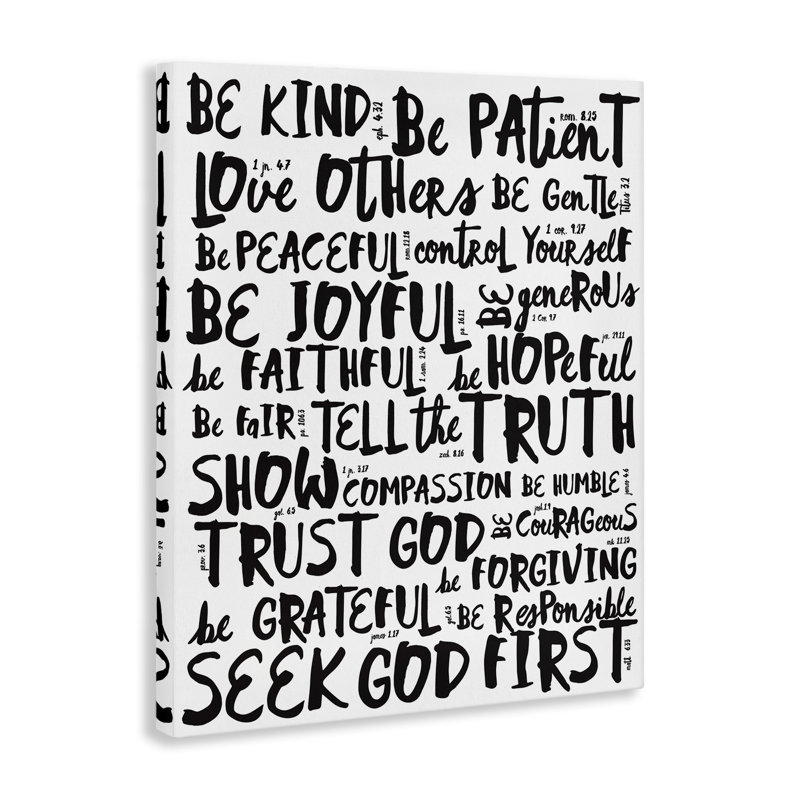 BE KIND eph. 4.32 Be PATienT rom. 8.25
LOve OTHers 1 jn. 4.7 BE GenTLe Titus 3.2
Be PEACEFUL rom. 12.18 conTROL YourseLF 1 cor. 9.27
BE JOYFUL ps. 16.11 BE geneRoUs 2 Cor. 9.7
be FAITHFUL 1 sam. 2.24 be HOPeFuL jer. 29.11
Be FaIR ps. 106.3 TELL the TRUTH zech. 8.16
SHOW COMPASSION 1 jn. 3.17 BE HUMBLE james 4.6
TRUST GOD prov. 3.6 BE CouRAGeouS josh. 1.9
be FORGIVING mk. 11.25
be GRATEFUL james 1.17 BE ResPonsible gal. 6.5
SEEK GOD FIRST matt. 6.33